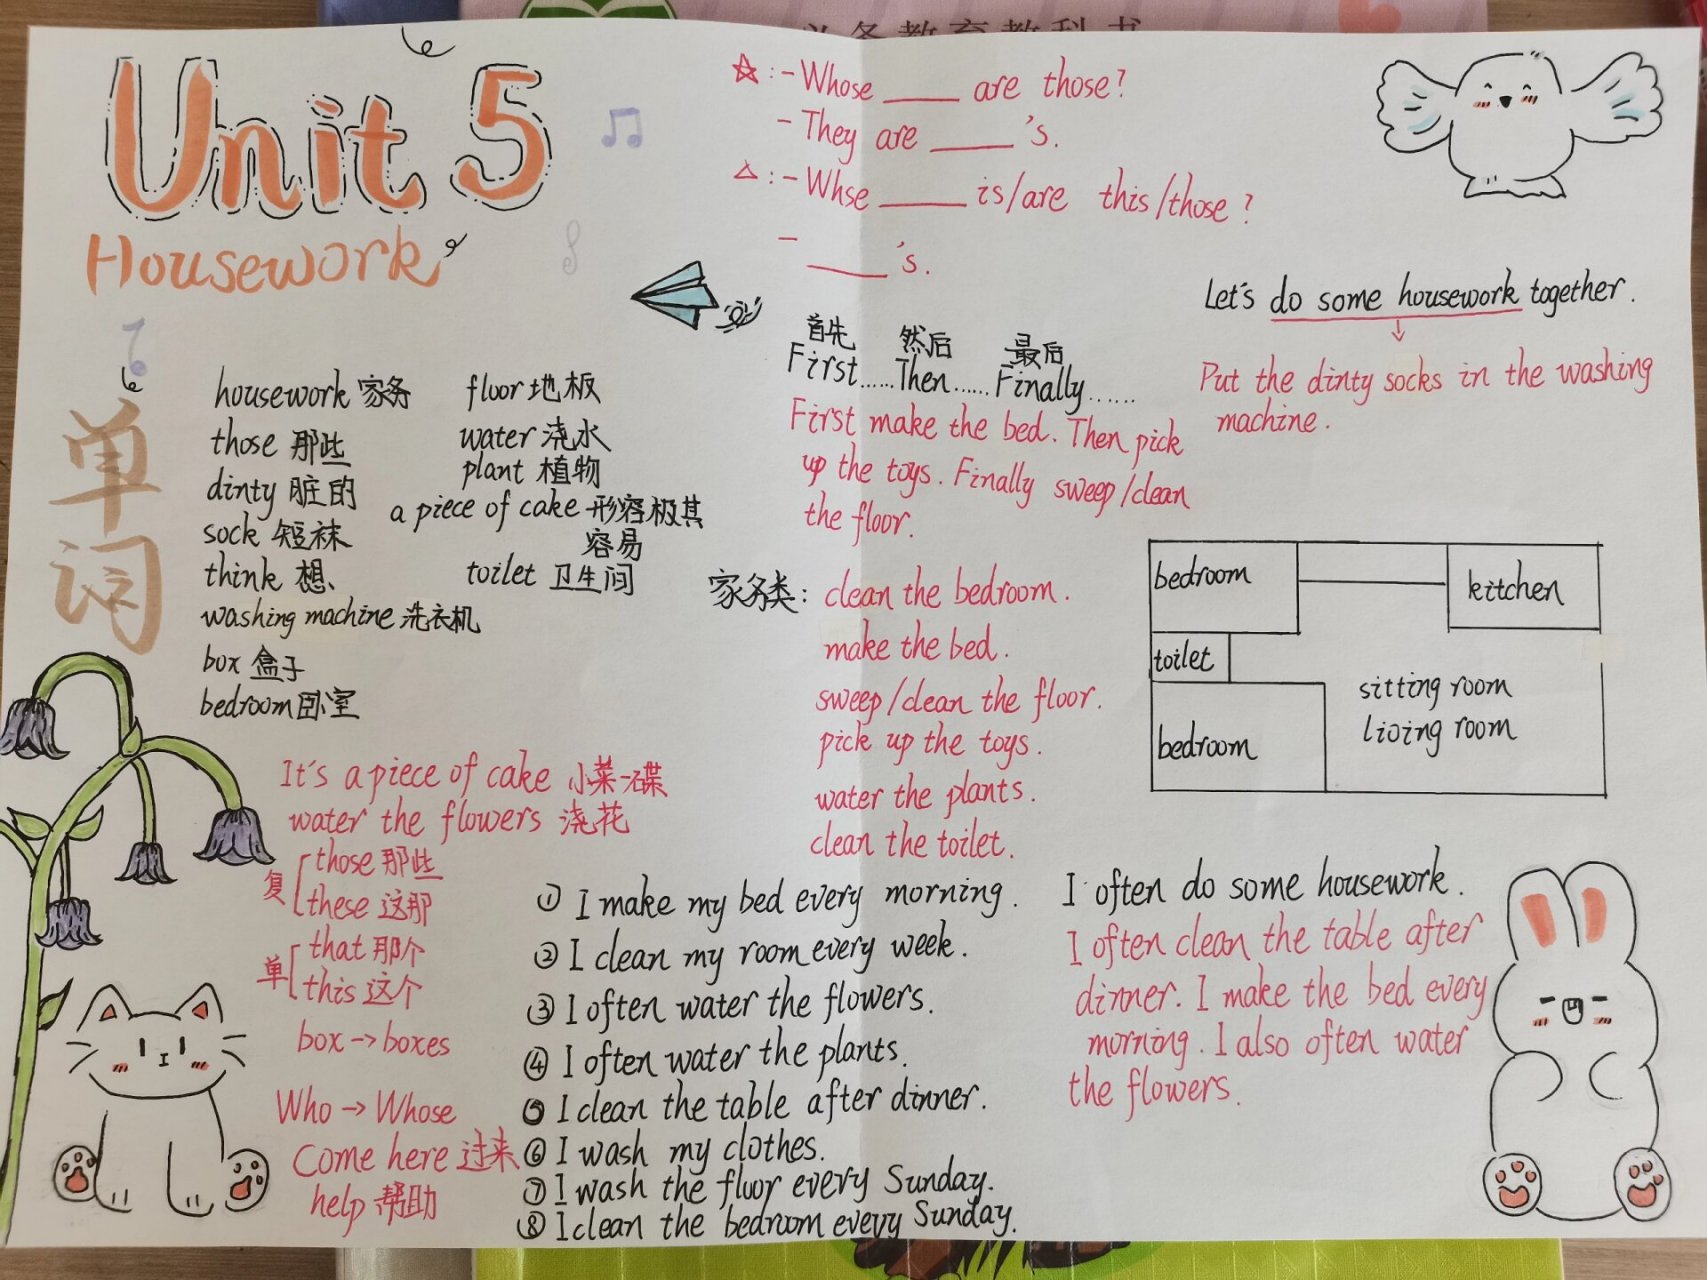 义务教育教科书
Unit 5
Housework
单词
housework 家务
those 那些
dinty 脏的
sock 短袜
think 想、
washing machine 洗衣机
box 盒子
bedroom 卧室
floor 地板
water 浇水
plant 植物
a piece of cake 形容极其
容易
toilet 卫生间
It's a piece of cake 小菜一碟
water the flowers 浇花
复
those 那些
these 这那
单
that 那个
this 这个
box → boxes
Who → Whose
Come here 过来
help 帮助
☆: - Whose ____ are those?
- They are ____ 's.
△: - Whse ____ is/are this/those?
- ____ 's.
首先 然后 最后
First......Then......Finally......
First make the bed. Then pick
up the toys. Finally sweep/clean
the floor.
家务类: clean the bedroom.
make the bed.
sweep/clean the floor.
pick up the toys.
water the plants.
clean the toilet.
① I make my bed every morning.
② I clean my room every week.
③ I often water the flowers.
④ I often water the plants.
⑤ I clean the table after dinner.
⑥ I wash my clothes.
⑦ I wash the floor every Sunday.
⑧ I clean the bedroom every Sunday.
Let's do some housework together.
↓
Put the dinty socks in the washing
machine.
bedroom
kitchen
toilet
sitting room
living room
bedroom
I often do some housework.
I often clean the table after
dinner. I make the bed every
morning. I also often water
the flowers.